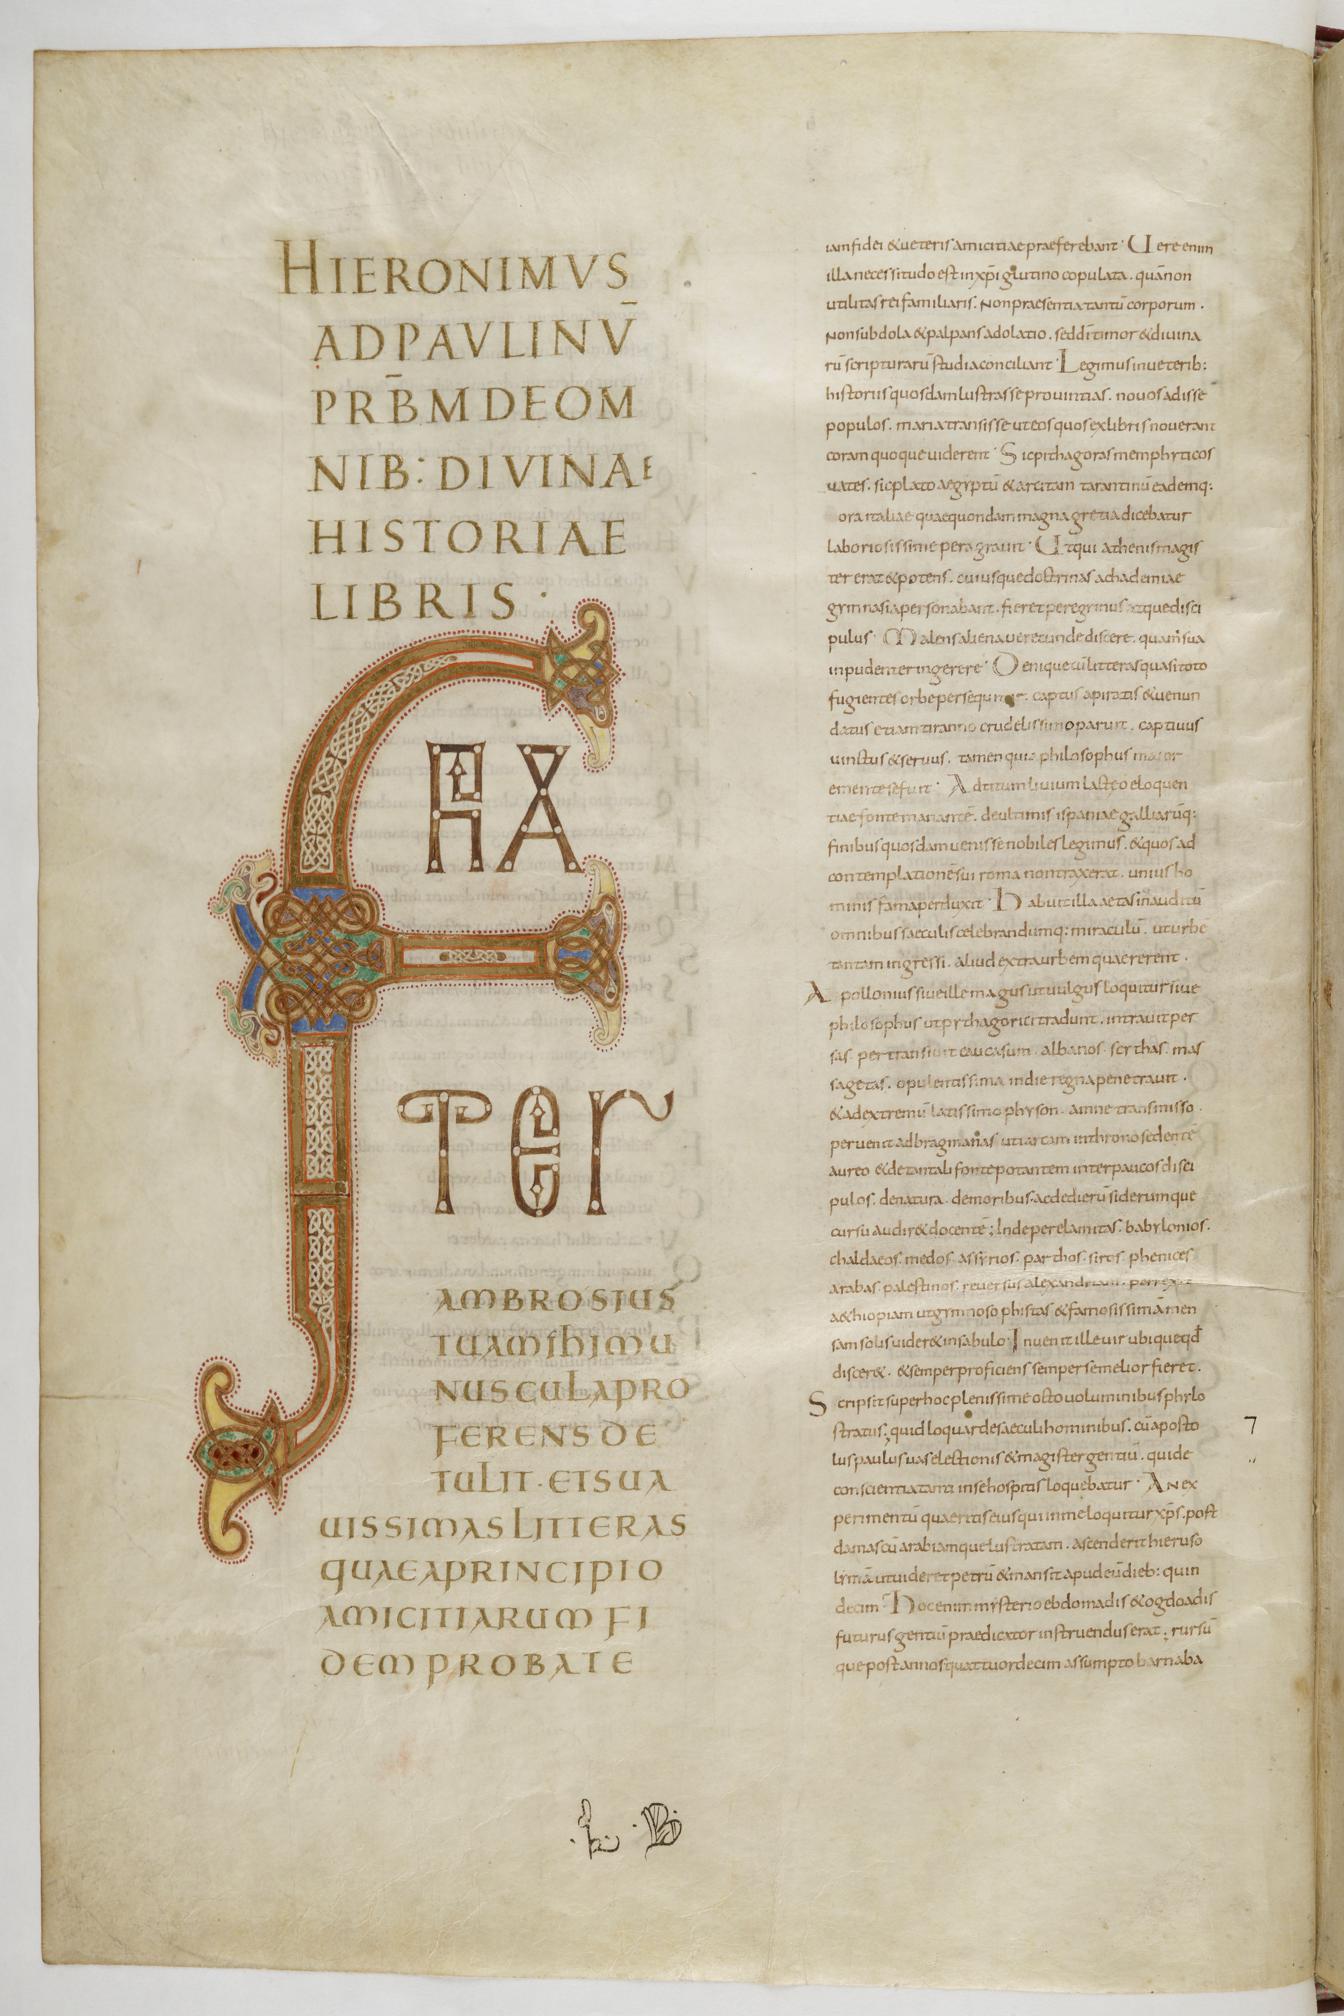 HIERONIMVS
AD PAVLINV̄
PRB̄M DE OM
NIB: DIVINAE
HISTORIAE
LIBRIS ·
FRA
TER
AMBROSIUS
TUA MIHI MU
NUSCULA PRO
FERENS DE
TULIT · ET SUA
UISSIMAS LITTERAS
QUAE A PRINCIPIO
AMICITIARUM FI
DEM PROBATE
iam fidei & ueteris amicitiae praeferebant · Uere enim
illa necessitudo est in xp̄i glutino copulata . quā non
utilitas rei familiaris . Non praesentia tantū corporum .
Non subdola & palpans adolatio . sed dī timor & diuina
rū scripturarū studia conciliant · Legimus in ueterib:
historiis quosdam lustrasse prouintias . nouos adisse
populos . maria transisse ut eos quos ex libris nouerant
coram quoque uiderent · Sic pithagoras memphyticos
uates . sic plato aegyptū & arcitam tarantinū eademq:
ora italiae quae quondam magna gretia dicebatur
laboriosissime peragrauit · Ut qui athenis magis
ter erat & potens . cuiusque doctrinas achademiae
gymnasia personabant . fieret peregrinus atque disci
pulus · Malens aliena uerecunde discere . quam sua
inpudenter ingerere · Denique cū litteras quasi toto
fugientes orbe persequitur . captus a piratis & uenun
datus etiam tiranno crudelissimo paruit . captiuus
uinctus & seruus . tamen quia philosophus maior
emente se fuit · Ad titum liuium lacteo eloquen
tiae fonte manantē . de ultimis ispaniae galliarūq:
finibus quosdam uenisse nobiles legimus . & quos ad
contemplationē sui roma non traxerat . unius ho
minis fama perduxit · Habuit illa aetas inauditū
omnibus saeculis celebrandumq: miraculū . ut urbē
tantam ingressi . aliud extra urbem quaererent .
Apollonius siue ille magus ut uulgus loquitur siue
philosophus ut pythagorici tradunt . intrauit per
sas . pertransiuit caucasum . albanos . scythas . mas
sagetas . opulentissima indie regna penetrauit .
& ad extremū latissimo physon . amne transmisso .
peruenit ad bragmanas ut iarcam in throno sedentē
aureo & de tantali fonte potantem inter paucos disci
pulos . de natura . de moribus ac de dierū siderumque
cursu audir& docentē ; Inde per elamitas . babylonios .
chaldaeos . medos . assyrios . parthos . siros . phenices
arabas . palestinos . reuersus alexandriam . perrexit
aethiopiam ut gymnosophistas & famosissimā men
sam solis uider& in sabulo · Inuenit ille uir ubique qd̄
discer& . & semper proficiens semper se melior fieret .
Scripsit super hoc plenissime octo uoluminibus phylo
stratus . quid loquar de saeculi hominibus . cū aposto
lus paulus uas electionis & magister gentiū . qui de
conscientia tanti in se hospitis loquebatur · An ex
perimentū quaeritis eius qui in me loquitur xp̄s . post
damascū arabiamque lustratam . ascenderit hieruso
lymā ut uideret petrū & mansit apud eū dieb: quin
decim · Hoc enim mysterio ebdomadis & ogdoadis
futurus gentiū praedicator instruendus erat ; rursū
que post annos quattuordecim assumpto barnaba
7